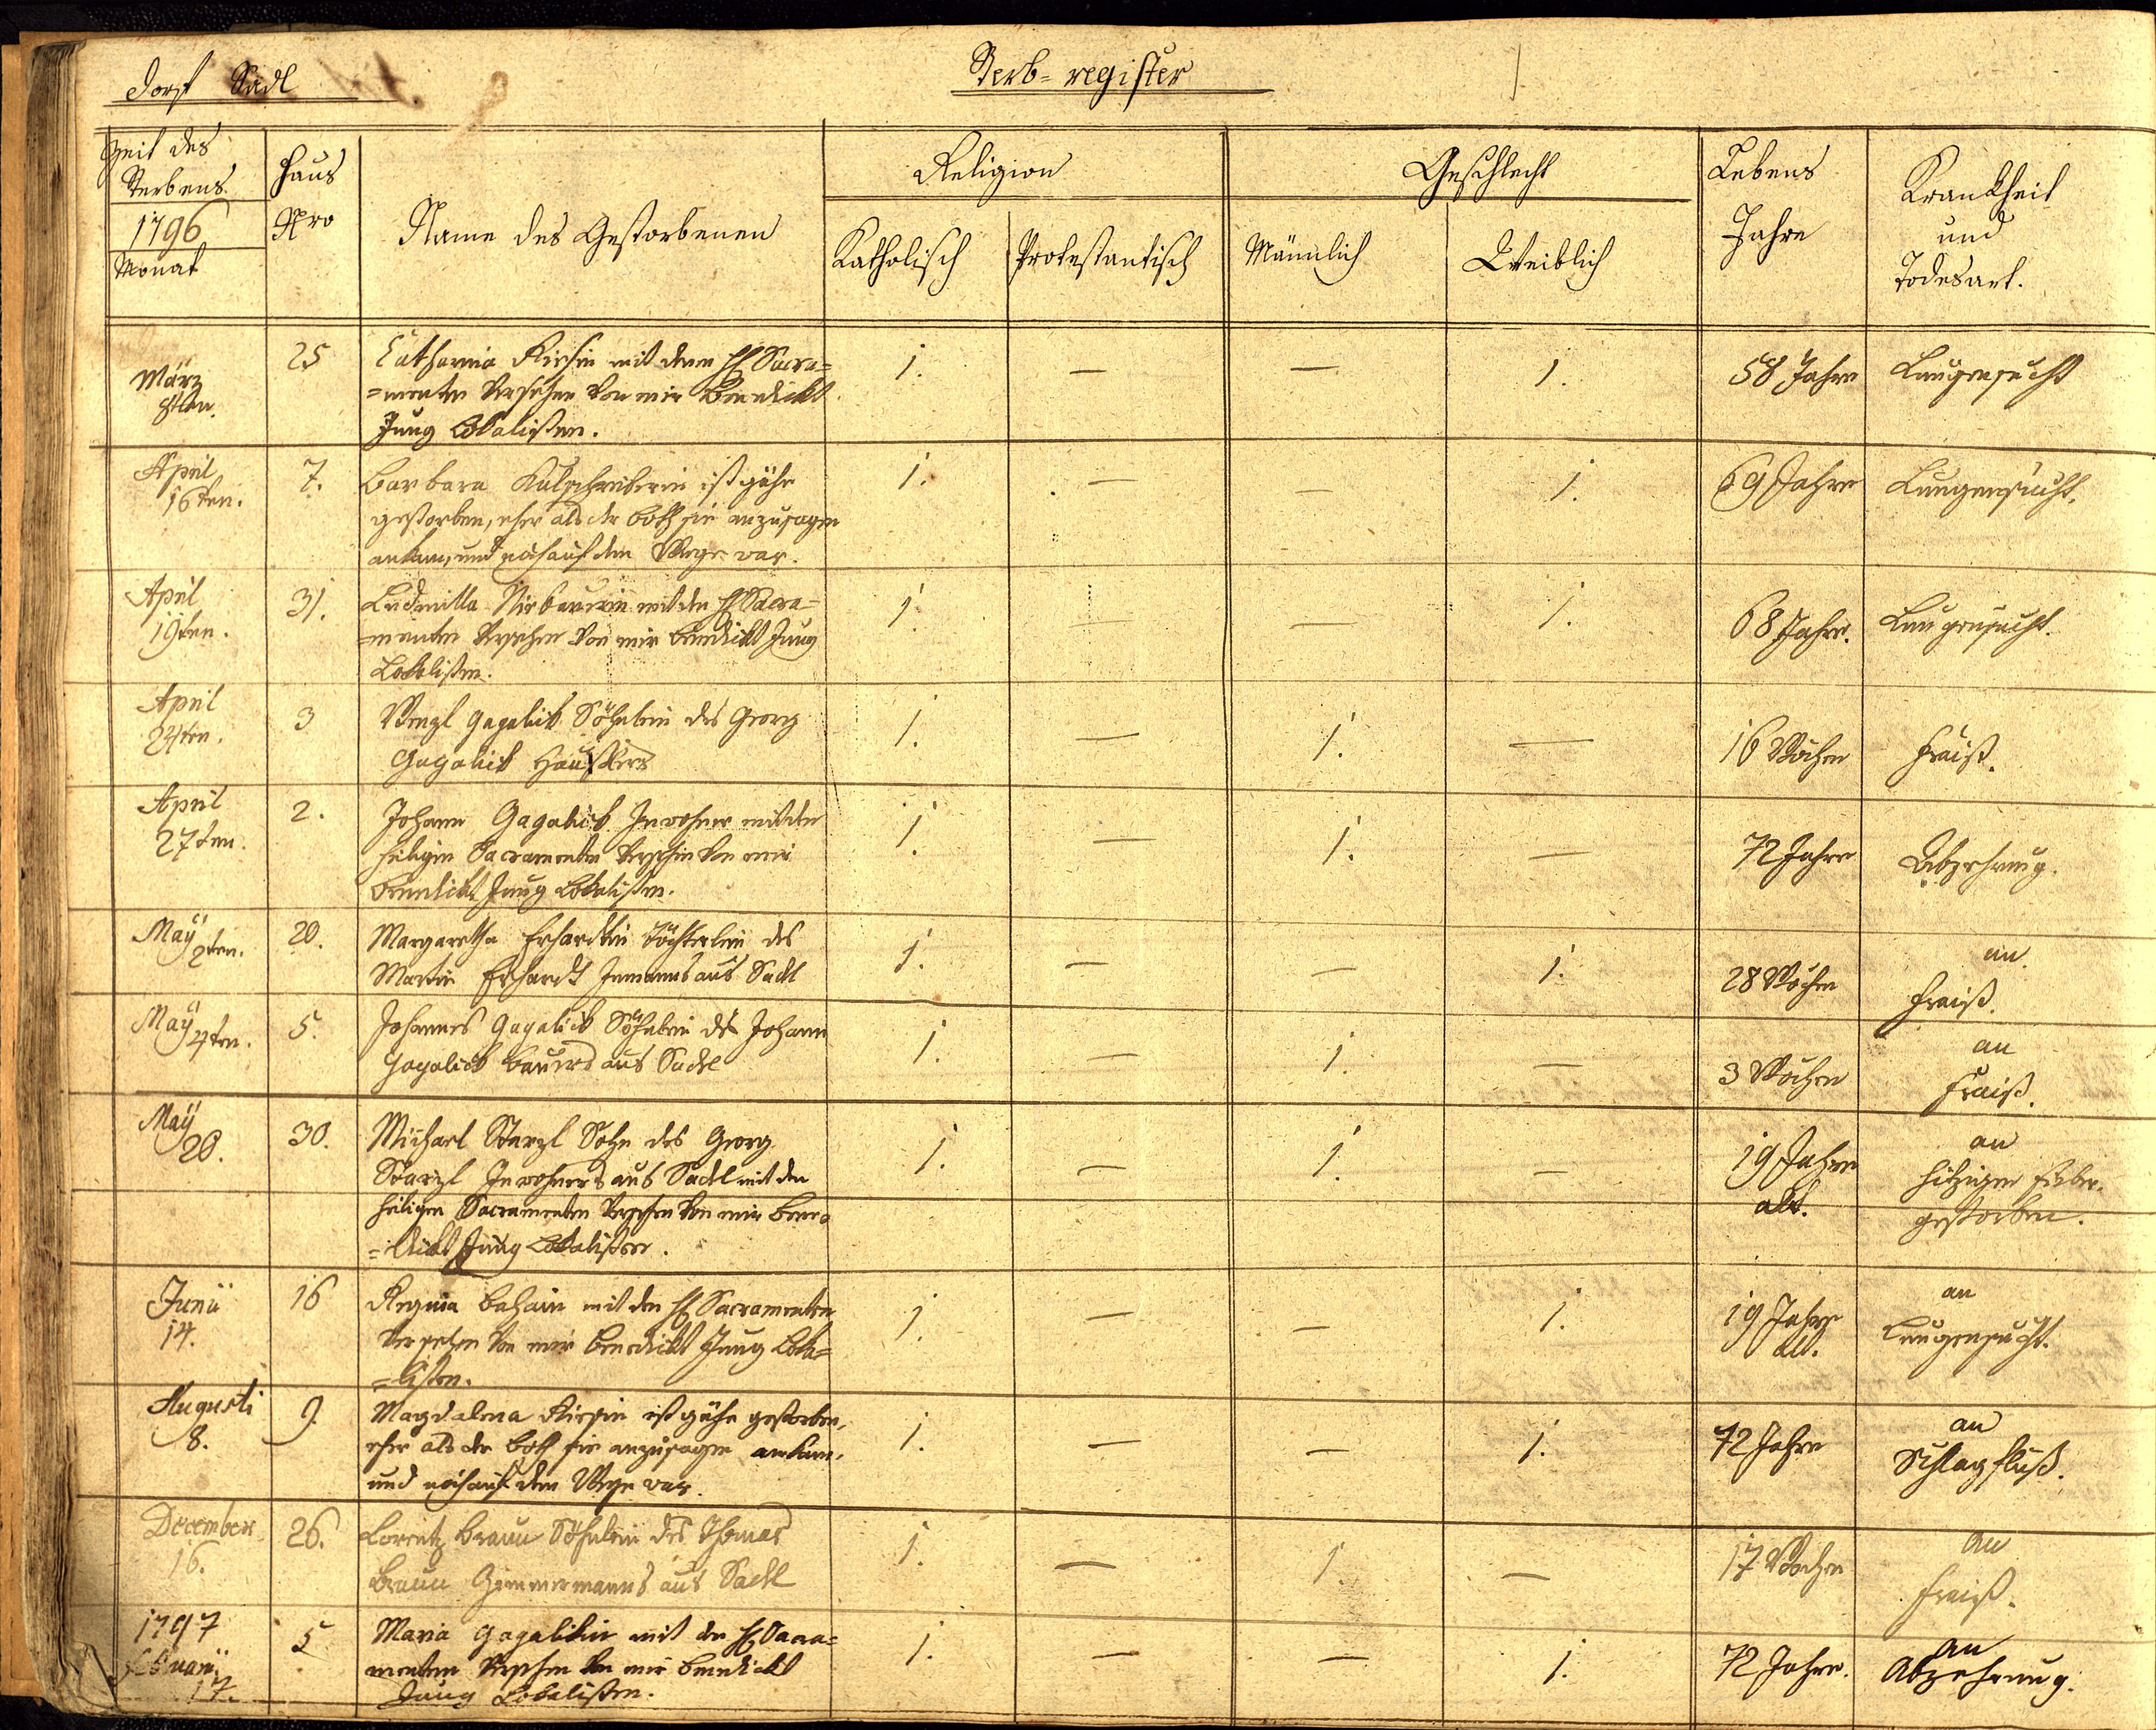 Dorf Sadl
Sterb-register
Zeit des Sterbens
1796
Monat
Haus Nro
Name des Gestorbenen
Religion
Katholisch
Protestantisch
Geschlecht
Männlich
Weiblich
Lebens Jahre
Krankheit und Todesart.
März 8ten.
25
Catharina mit denen HH Sacra=
=menten Versehen Von mir Benedickt
Jung Lokalisten.
1. — — 1.
58 Jahre
Lungensucht
April 16ten.
7.
Barbara ist gähe
gestorben, eher als der both sie anzusagen
ankam, und noch auf dem Wege war.
1. — — 1.
69 Jahre
Lungensucht.
April 19ten.
31.
Ludmilla mit den HH Sacra=
=menten Versehen Von mir Benedickt Jung
Lokalisten.
1. — — 1.
68 Jahre.
Lungensucht.
April 24ten.
3
Wenzl Gagalick Söhnlein des Georg
Gagalick Häußlers
1. — 1. —
16 Wochen
Fraiß.
April 27ten.
2.
Johann Gagalick Inwohner mit den
heiligen Sacramenten Versehen Von mir
Benedickt Jung Lokalisten.
1. — 1. —
72 Jahre
Abzehrung.
Maÿ 2ten.
20.
Margaretha Erhardtin Töchterlein des
Martin Erhardt Inmanns aus Sadl
1. — — 1.
28 Wochen
an Fraiß.
Maÿ 4ten.
5.
Johannes Gagalick Söhnlein des Johann
Gagalick Bauers aus Sadl
1. — 1. —
3 Wochen
an Fraiß.
Maÿ 20.
30.
Michael Starzl Sohn des Georg
Starzl Inwohners aus Sadl mit den
heiligen Sacramenten Versehen Von mir Bene=
=dickt Jung Lokalisten.
1. — 1. —
19 Jahre alt.
an hitzigen Fieber gestorben.
Junii 14.
16
Regina mit den HH Sacramenten
Versehen Von mir Benedickt Jung Loka=
=listen.
1. — — 1.
19 Jahre alt.
an Lungensucht.
Augusti 8.
9
Magdalena ist gähe gestorben,
eher als der both sie anzusagen ankam,
und noch auf dem Wege war.
1. — — 1.
72 Jahre
an Schlagfluß.
December 16.
26.
Lorentz Braun Söhnlein des Thomas
Braun Zimmermanns aus Sadl
1. — 1. —
17 Wochen
an Fraiß.
1797
Februarii 17.
5
Maria Gagalikin mit den HH Sacra=
menten Versehen Von mir Benedickt
Jung Lokalisten.
1. — — 1.
72 Jahre.
an Abzehrung.